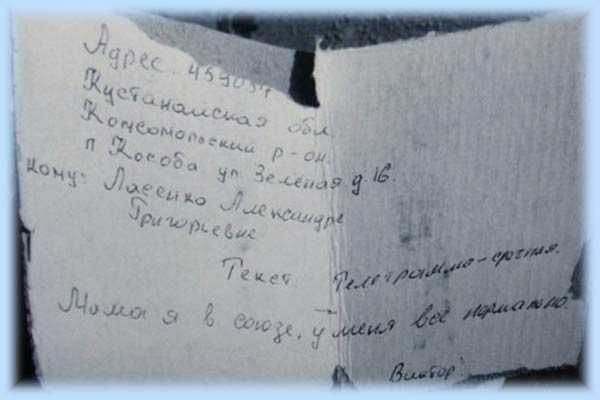 Адрес 459034
Кустанайская обл.
Комсомольский р-он.
п Кособа ул Зеленая д. 16.
кому: Ласенко Александре
Григорьевне
Текст. Телеграмма-срочная.
Мама я в союзе, у меня всё нормально.
Виктор